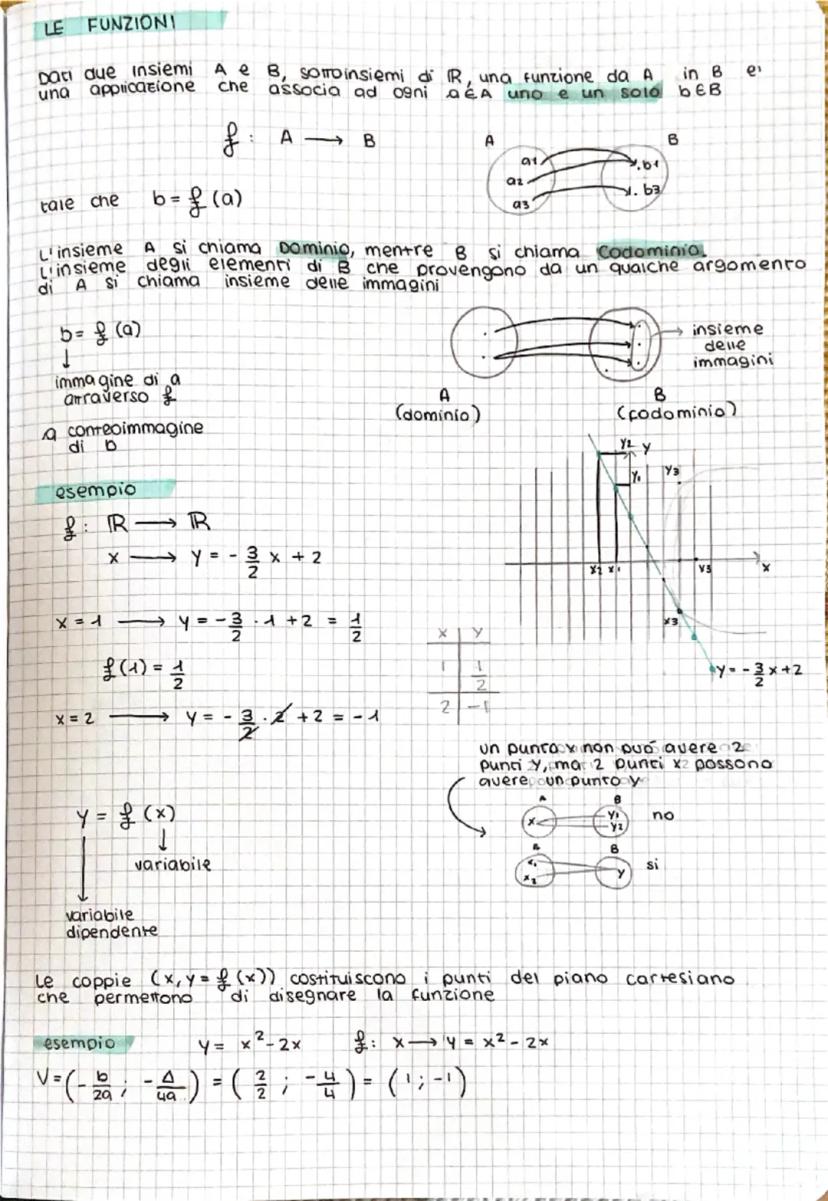 LE FUNZIONI
Dati due insiemi A e B, sottoinsiemi di ℝ, una funzione da A in B e'
una applicazione che associa ad ogni a∈A uno e un solo b∈B
f: A → B
A B
a1 .b1
a2
a3 . b3
tale che b = f (a)
L'insieme A si chiama Dominio, mentre B si chiama Codominio.
L'insieme degli elementi di B che provengono da un qualche argomento
di A si chiama insieme delle immagini
b = f (a)
↓
immagine di a
attraverso f
a controimmagine
di b
→ insieme
delle
immagini
A B
(dominio) (codominio)
esempio
f: ℝ → ℝ
x → y = - 3/2 x + 2
x = 1 → y = - 3/2 · 1 + 2 = 1/2
f(1) = 1/2
x = 2 → y = - 3/2 · 2 + 2 = -1
x | y
1 | 1/2
2 | -1
y2 y
y1 y3
x2 x1 y3 x
x3
y = - 3/2 x + 2
un punto x non può avere 2
punti y, ma 2 punti x possono
avere un punto y
A B
x y1 y2 no
A B
x1 x2 y si
y = f (x)
↓
variabile
variabile
dipendente
Le coppie (x, y = f (x)) costituiscono i punti del piano cartesiano
che permettono di disegnare la funzione
esempio y = x² - 2x f: x → y = x² - 2x
V = (- b/2a ; - Δ/4a) = ( 2/2 ; - 4/4 ) = (1 ; -1)